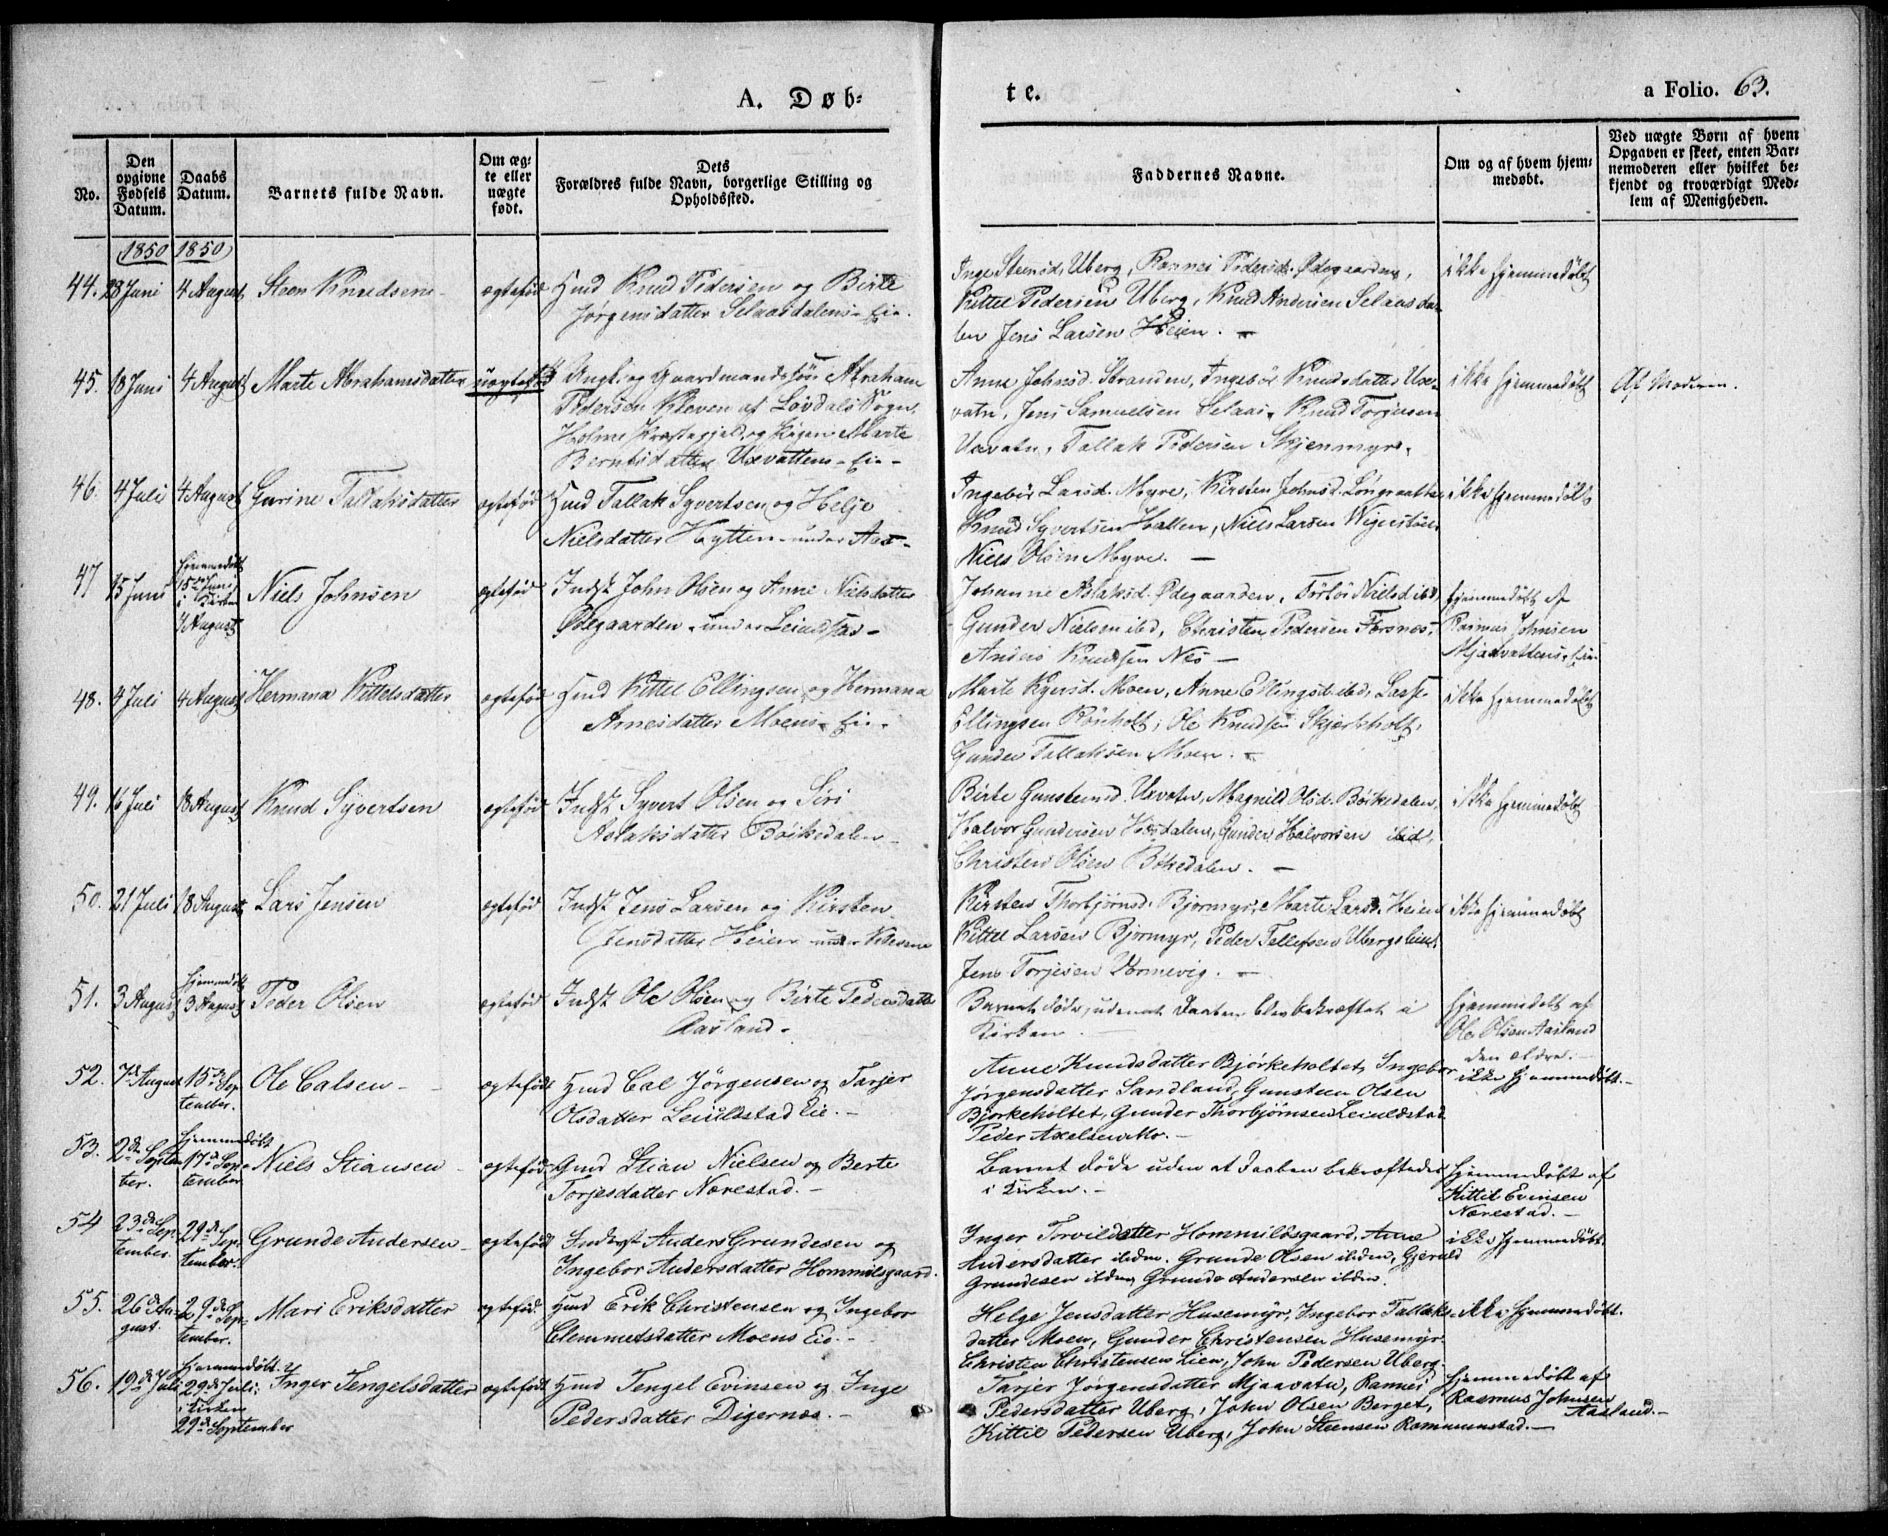 A. Døb-
te.
a Folio. 63.
No.
Den
opgivne
Fødsels
Datum.
Daabs
Datum.
Barnets fulde Navn.
Om æg-
te eller
uægte
født.
Dets
Forældres fulde Navn, borgerlige Stilling og
Opholdssted.
Faddernes Navne.
Om og af hvem hjem-
medøbt.
Ved uægte Børn af hvem
Opgaven er skeet, enten Bar-
nemoderen eller hvilket be-
kjendt og troværdigt Med-
lem af Menigheden.
1850 1850
44. 23 Juni 4 August Steen Knudsen ægtefød Hmd Knud Pedersen og Birte
Jørgensdatter Selaasdalens Eie.
Inge Steensd. Uberg, Rannei Pedersd. Ødegaarden,
Kittel Pedersen Uberg, Knud Andersen Selaasda-
len Jens Larsen Heien. —
ikke hjemmedøbt
45. 18 Juni 4 August Marte Abrahamsdatter uægtefød Ungk. og Gaardmandssøn Abraham
Pedersen Kleven af Løvdals Sogn,
Holme Præstegjeld, og Pigen Marte
Berntsdatter Uxvattens Eie —
Anne Johnsd. Stranden, Ingebor Knudsdatter Uxe-
vatn, Jens Samuelsen Selaas, Knud Torjusen
Uxvatn, Tallak Pedersen Skjenmyr.
ikke hjemmedøbt
Af Moderen.
46. 4 Juli 4 August Gurine Tallaksdatter ægtefød Hmd Tallak Syvertsen og Helje
Nielsdatter Hytten under Aas —
Ingebor Larsd. Myre, Kirsten Johnsd.
Knud Syvertsen Hallen, Niels Larsen
Niels Olsen Myre. —
ikke hjemmedøbt
47 15 Juni hjemmedøbt
15de Juni
i Kirken
4 August
Niels Johnsen ægtefød Indst John Olsen og Anne Nielsdatter
Ødegaarden under Leiulfstad —
Johanne Aslaksd. Ødegaarden, Torbor Nielsd ibd
Gunder Nielsen ibd, Christen Pedersen Forsnes,
Anders Knudsen Nes —
hjemmedøbt af
Rasmus Johnsen
Mjaavattens Eie.
48. 4 Juli 4 August Hermana Kittelsdatter ægtefød Hmd Kittel Ellingsen og Hermana
Arnesdatter Moens Eie.
Marte Kjersd. Moen, Anne Ellingsd. ibd, Lasse
Ellingsen Rønholt, Ole Knudsen Skjerkholt,
Gunder Tallaksen Moen. —
ikke hjemmedøbt
49. 16 Juli 18 August Knud Syvertsen ægtefød Indst Syvert Olsen og Siri
Aslaksdatter Bøikedalen —
Birte Gunsteinsd. Uxvatn, Magnild Olsd. Bøikedalen,
Halvor Gundersen Hæsdalen, Gunder Halvorsen ibid,
Christen Olsen Bøkedalen. —
ikke hjemmedøbt
50. 21 Juli 18 August Lars Jensen ægtefød Indst Jens Larsen og Kirsten
Jensdatter Heien under
Kirsten Thorbjørnsd. Bjormyr, Marte Larsd. Heien
Kittel Larsen Bjormyr, Peder Tellefsen Ubergslien,
Jens Torjesen Vormevig. —
ikke hjemmedøbt
51. 3 August hjemmedøbt
3 August
Peder Olsen ægtefød Indst Ole Olsen og Birte Pedersdatter
Aasland.
Barnet døde, uden at Daaben blev bekræftet i
Kirken.
hjemmedøbt af
Ole Olsen Aasland
den ældre.
52. 7de August 15de Sep-
tember.
Ole Calsen — ægtefødt Hmd Cal Jørgensen og Tarjer
Olsdatter Leiulfstad Eie. —
Anne Knudsdatter Bjørkeholtet, Ingebor
Jørgensdatter Sandland, Gunsteen Olsen
Bjørkeholtet, Gunder Thorbjørnsen Leiulfstad
Peder Axelsen Mo. —
ikke hjemmedøbt. —
53. 2de Septem-
ber.
hjemmedøbt
17de Sep-
tember
Niels Stiansen ægtefød Gmd Stian Nielsen og Berte
Torjesdatter Nærestad. —
Barnet døde uden at Daaben bekræftedes
i Kirken. —
hjemmedøbt af
Kittil Evinsen
Nærestad. —
54 23de Sep-
tember.
29de Sep-
tember.
Grunde Andersen ægtefødt Inderst Anders Grundesen og
Ingebor Andersdatter Hommilsgaard.
Inger Torvildatter Hommildsgaard, Anne
Andersdatter ibiden. Grunde Olsen ibiden, Gjeruld
Grundesen ibiden, Grunde Andersen ibiden.
ikke hjemmedøbt.
55. 26de Au-
gust.
29de Sep-
tember.
Mari Eriksdatter ægtefød. Hmd Erik Christensen og Ingebor
Clemmetsdatter Moens Eie. —
Helge Jensdatter Husemyr, Ingebor Tallaks-
datter Moen, Gunder Christensen Husemyr.
Christen Christensen Lien, John Pedersen Uberg.
ikke hjemmedøbt.
56. 19de Juli hjemmedøbt.
29de Juli.
i Kirken
29de September
Inger Tengelsdatter ægtefødt Hmd Tengel Evinsen og Inge
Pedersdatter Digernes. —
Tarjer Jørgensdatter Mjaavatn, Rannei
Pedersdatter Uberg, John Olsen Berget,
Kittil Pedersen Uberg, John Steensen Rommunstad. —
hjemmedøbt af
Rasmus Johnsen
Aasland. —